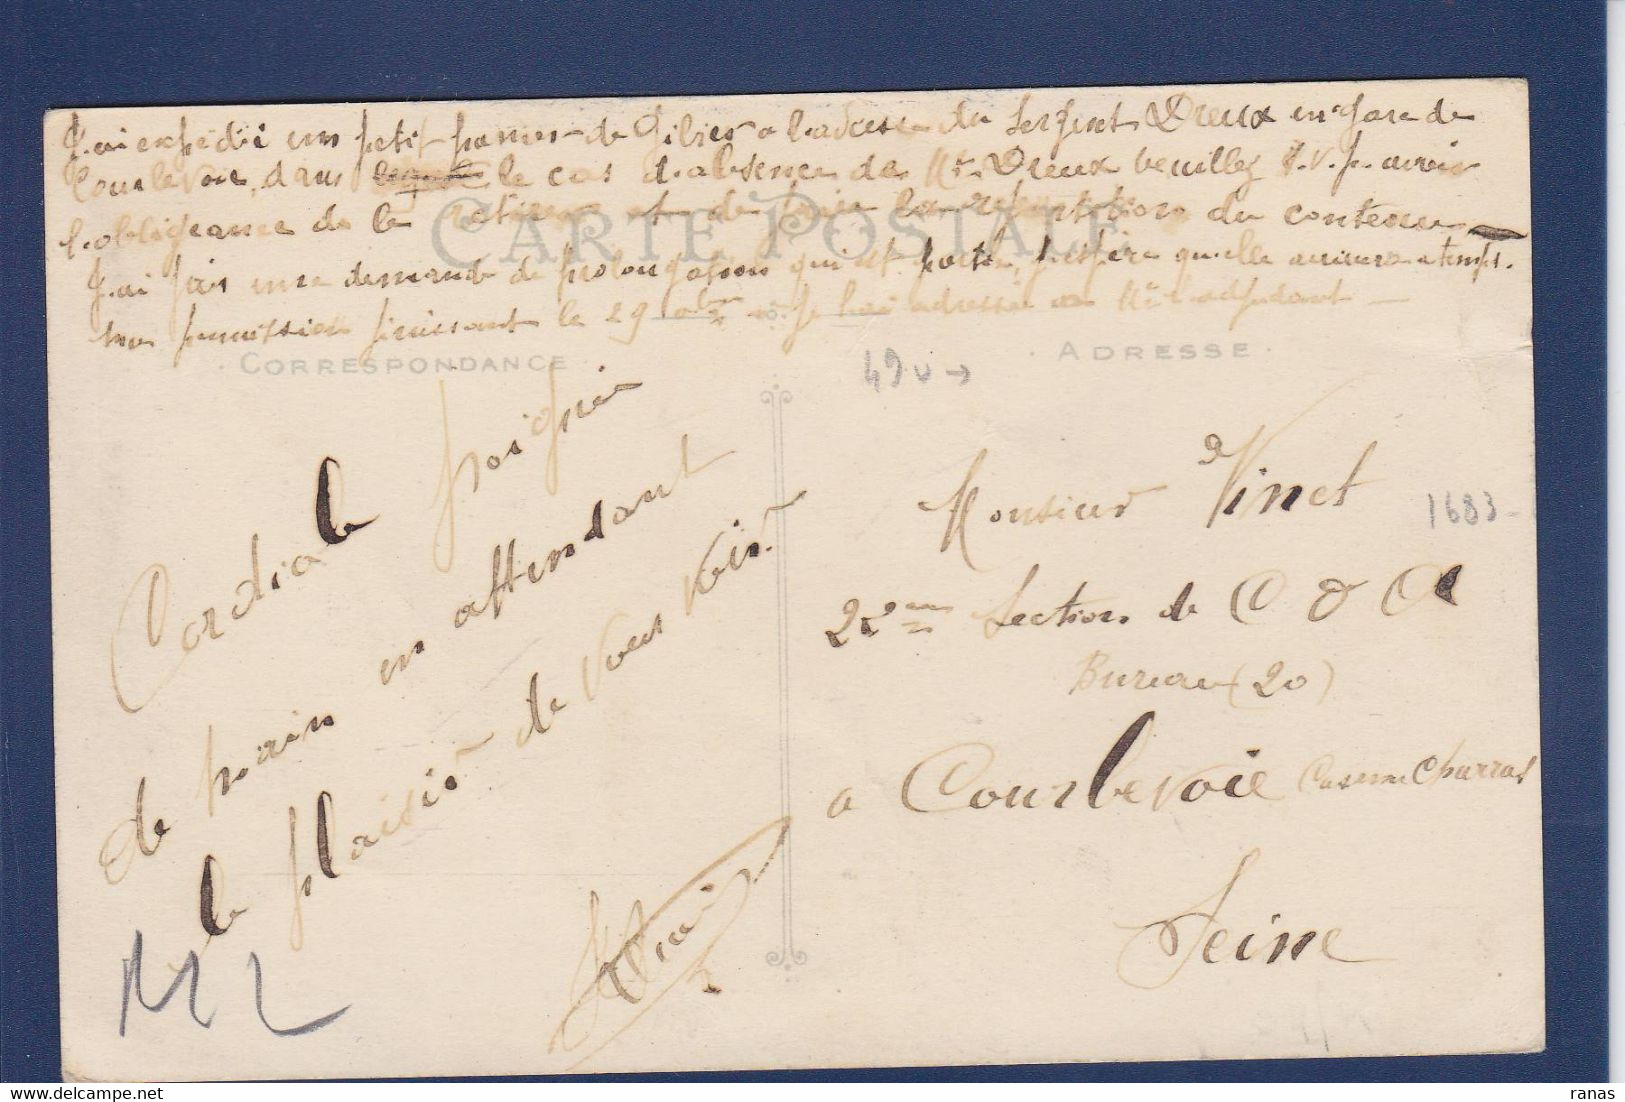 J'ai expédié un petit panier de Gibier a l'adresse du Sergent Dreux en gare de
Courbevoie, dans le cas d'absence de Mr Dreux veuillez S.V.P. avoir
l'obligeance de le retirer et de faire la répartition du contenu
J'ai fais une demande de prolongation qui est partie, j'espère qu'elle arrivera a temps.
ma permission finissant le 29 je l'ai adressée a Mr l'adjudant —
CARTE POSTALE
CORRESPONDANCE
ADRESSE
49 v →
Cordiale poignée
de main en attendant
le plaisir de vous voir
M L
Monsieur Vinet
1683
22ème Section de C O A
Bureau (20)
a Courbevoie Caserne Charras
Seine
ranas